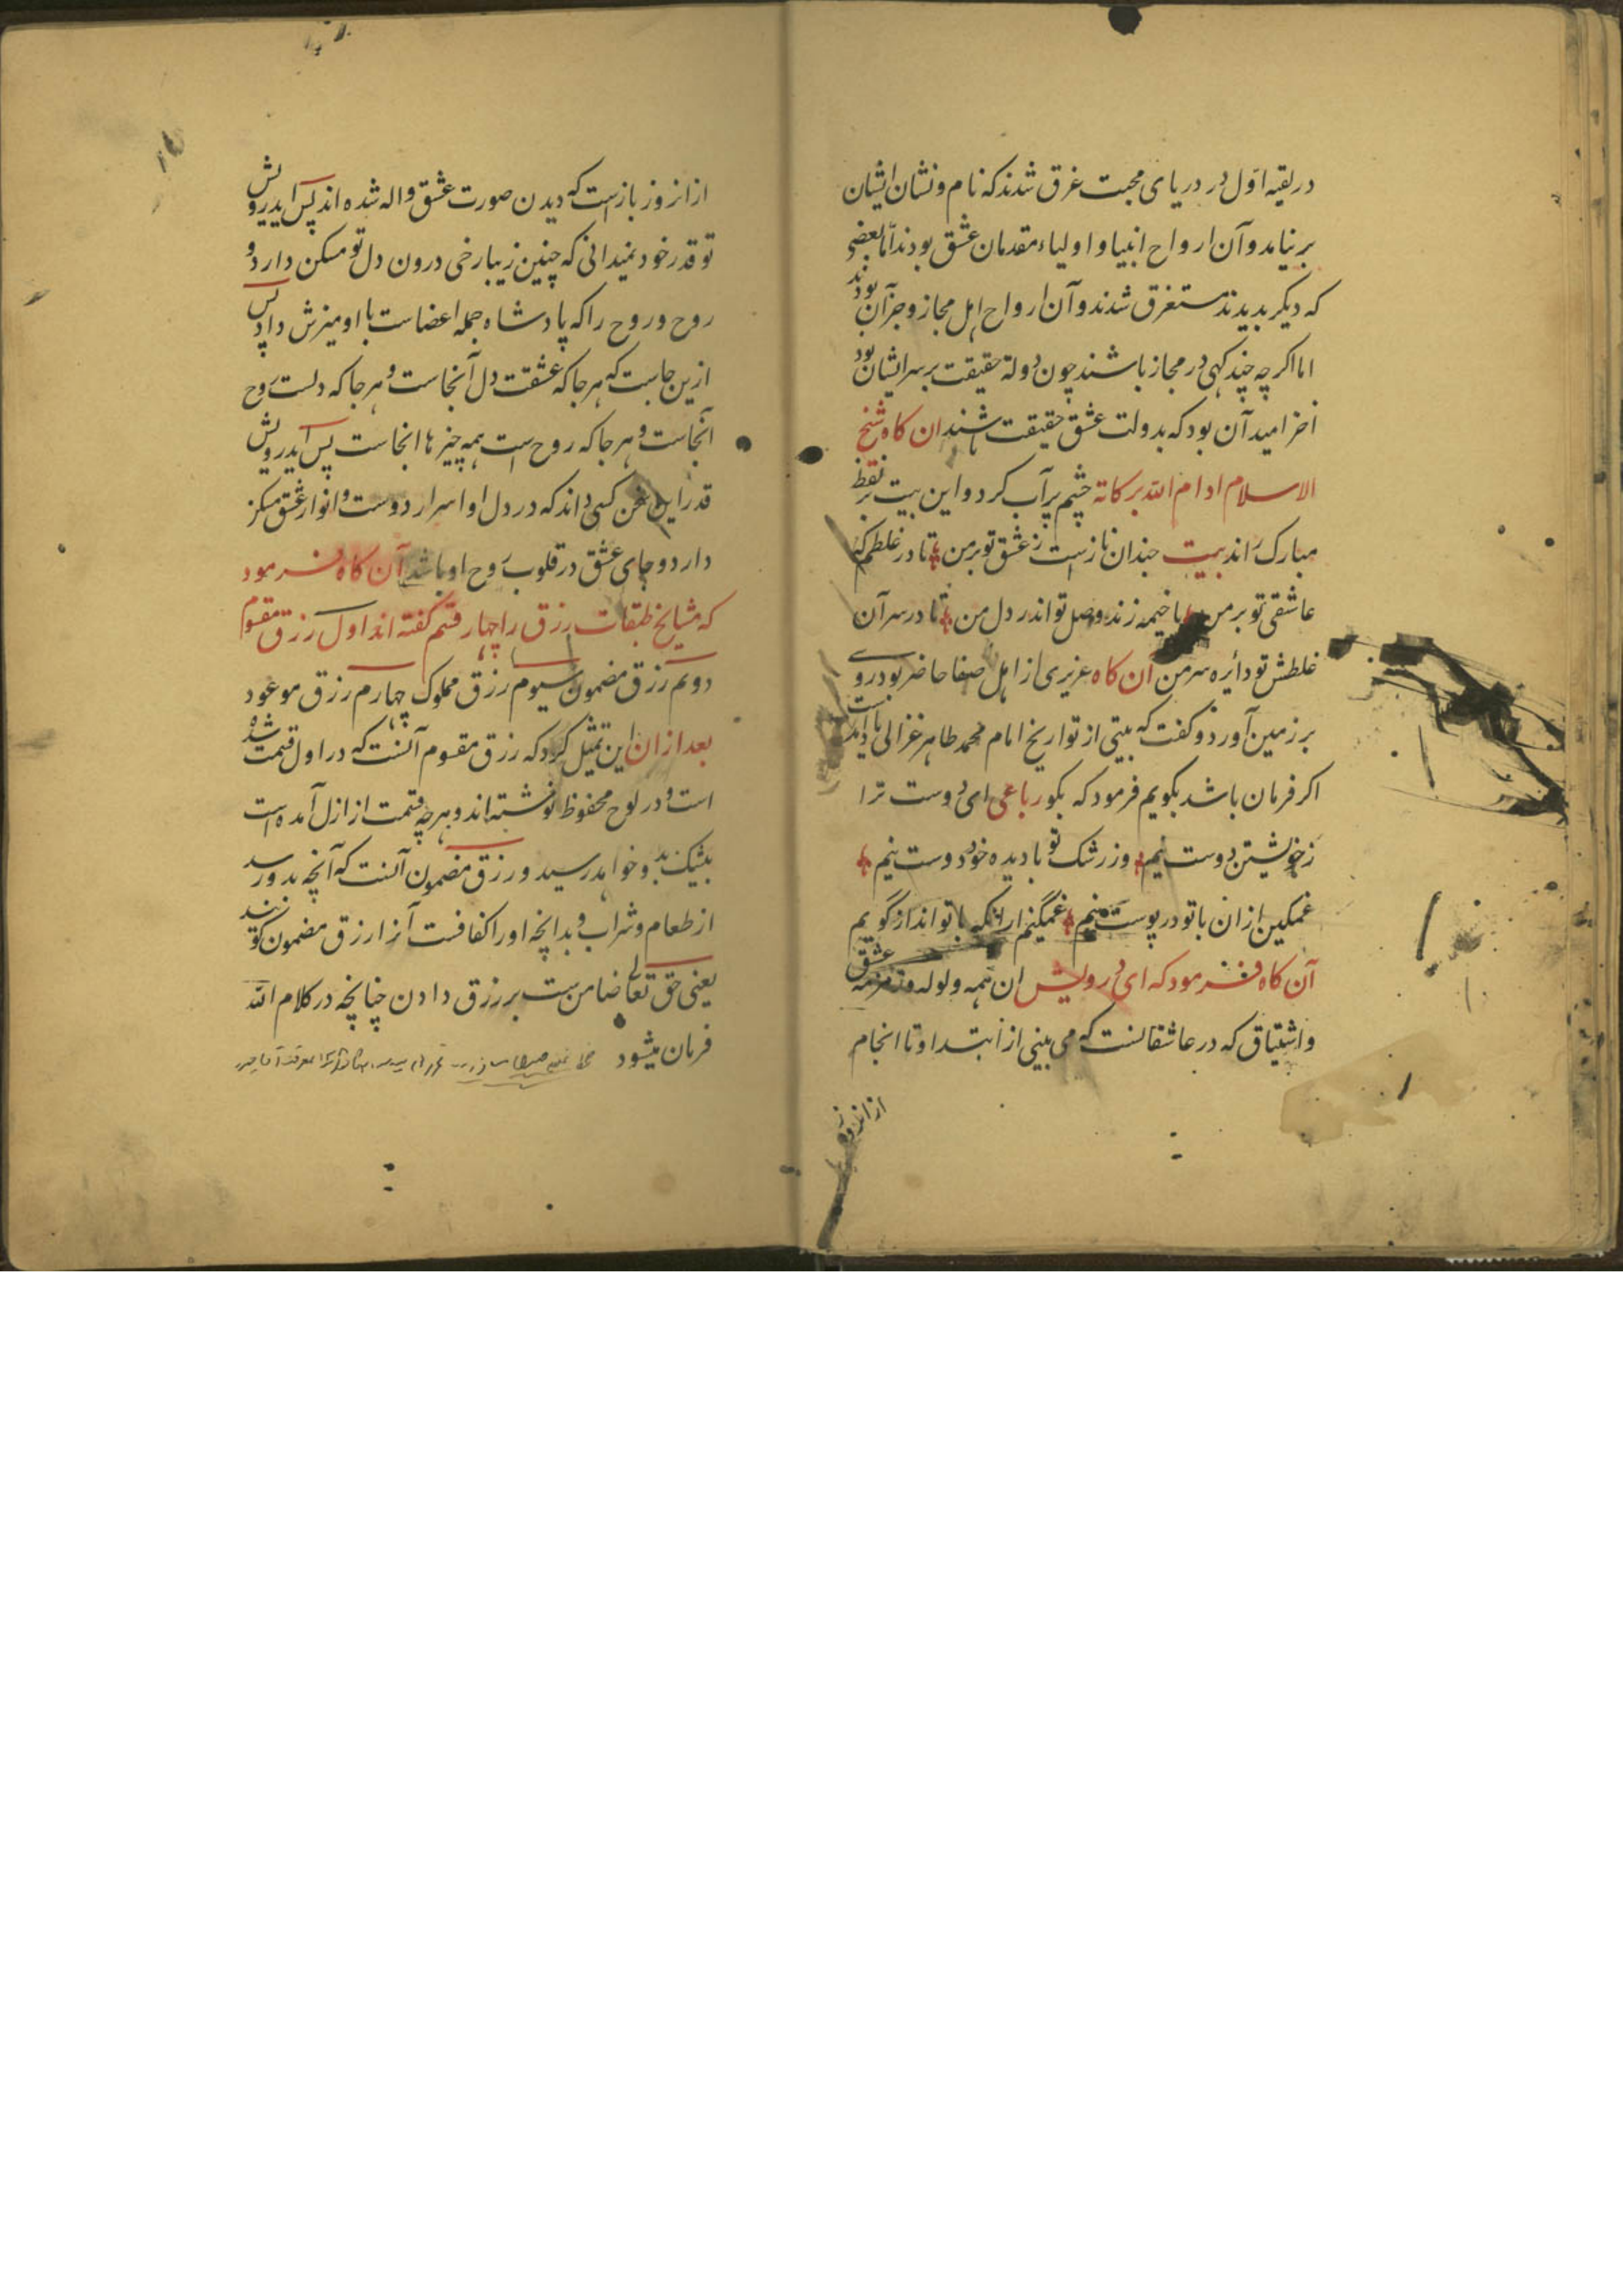 در بقیه اول در دریای محبت غرق شدند که نام و نشان ایشان
بر نیامد و آن ارواح انبیا و اولیاء مقدمان عشق بودند اما بعضی
که دیکر بدیدند مستغرق شدند و آن ارواح اهل مجاز و جز آن بودند
اما اکر چه چند کهی در مجاز باشند چون دولة حقیقت بر سر ایشان بود
اخر امید آن بود که بدولت عشق حقیقت باشند ان کاه شیخ
الاسلام ادام الله برکاته چشم پر آب کرد و این بیت بر لفظ
مبارک راند بیت چندان نازست ز عشق تو بر من تا در غلطم که
عاشقی تو بر من یا خیمه زند وصل تو اندر دل من تا در سر آن
غلطش تو دائره سر من آن کاه عزیزی از اهل صفا حاضر بود روے
بر زمین آورد و کفت که بیتی از تواریخ امام محمد طاهر غزالی یاد آمده است
اکر فرمان باشد بکویم فرمود که بکو رباعی ای دوست ترا
ز خویشتن دوست نیم وز رشک تو با دیده خود دوست نیم
غمکین از ان با تو در پوست نیم غمگینم ار انکه با تو انداز گویم
آن کاه فرمود که ای درویش ان همه ولوله و زمزمه عشق
و اشتیاق که در عاشقانست که می بینی از ابتدا و تا انجام
از انروز
از انروز باز است که دیدن صورت عشق واله شده اند پس ایدرویش
تو قدر خود نمیدانی که چنین زیبا رخی درون دل تو مسکن دارد و
روح و روح را که پادشاه جمله اعضاست با او میزش داد پس
ازین جاست که هر جا که عشقت دل آنجاست و هر جا که دلست روح
آنجاست و هر جا که روح است همه چیزها انجاست پس ایدرویش
قدر این سخن کسی داند که در دل او اسرار دوست و انوار عشق مسکن
دارد و جای عشق در قلوب روح او باشد آن کاه فرمود
که مشایخ طبقات رزق را چهار قسم کفته اند اول رزق مقسوم
دویم رزق مضمون سیوم رزق مملوک چهارم رزق موعود
بعد از ان این تمثیل کرد که رزق مقسوم آنست که در اول قسمت شده
است و در لوح محفوظ نوشته اند و هر چه قسمت از ازل آمده است
بیشک بدو خواهد رسید و رزق مضمون آنست که آنچه بدو رسد
از طعام و شراب و بدانچه او را کفافست آنرا رزق مضمون کویند
یعنی حق تعالے ضامن ست بر رزق دادن چنانچه در کلام الله
فرمان میشود